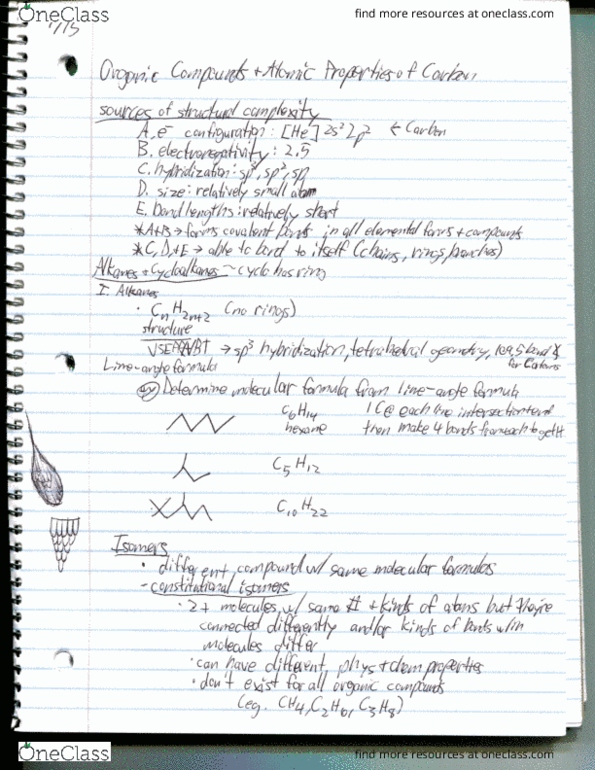 OneClass
find more resources at oneclass.com
9/15
Organic Compounds + Atomic Properties of Carbon
sources of structural complexity
A. e⁻ configuration: [He] 2s² 2p² ← Carbon
B. electronegativity: 2.5
C. hybridization: sp³, sp², sp
D. size: relatively small atom
E. bond lengths: relatively short
*A+B → forms covalent bonds in all elemental forms + compounds
*C, D, + E → able to bond to itself (chains, rings, branches)
Alkanes + Cycloalkanes ~ cyclo has ring
I. Alkanes
· CnH2n+2 (no rings)
structure
VSEPR/VBT → sp³ hybridization, tetrahedral geometry, 109.5 bond ∡
for Carbons
Line-angle formula
ex Determine molecular formula from line-angle formula
C6H14 1 C @ each line intersection + end
hexane then make 4 bonds from each to get H
C5H12
C10H22
Isomers
· different compound w/ same molecular formulas
- constitutional isomers
· 2+ molecules w/ same # + kinds of atoms but they're
connected differently and/or kinds of bonds w/in
molecules differ
· can have different phys + chem properties
· don't exist for all organic compounds
(eg. CH4, C2H6, C3H8)
OneClass
find more resources at oneclass.com